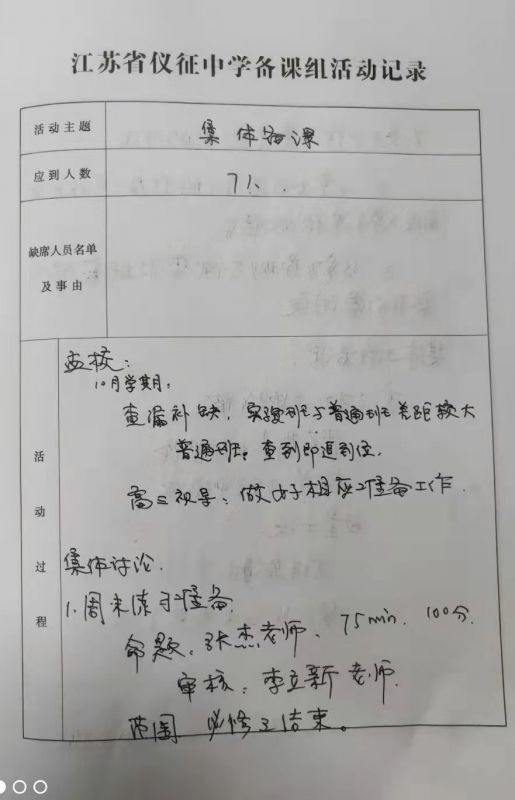 江苏省仪征中学备课组活动记录
活动主题 集体备课
应到人数 7人.
缺席人员名单
及事由
活动过程
10月学期:
查漏补缺,实验班与普通班差距较大
普通班。查到即追到位.
高三视导:做好相应准备工作.
集体讨论.
1.周末练习准备
命题:张杰老师、75min、100分.
审核:李立新老师.
范围 必修三结束。